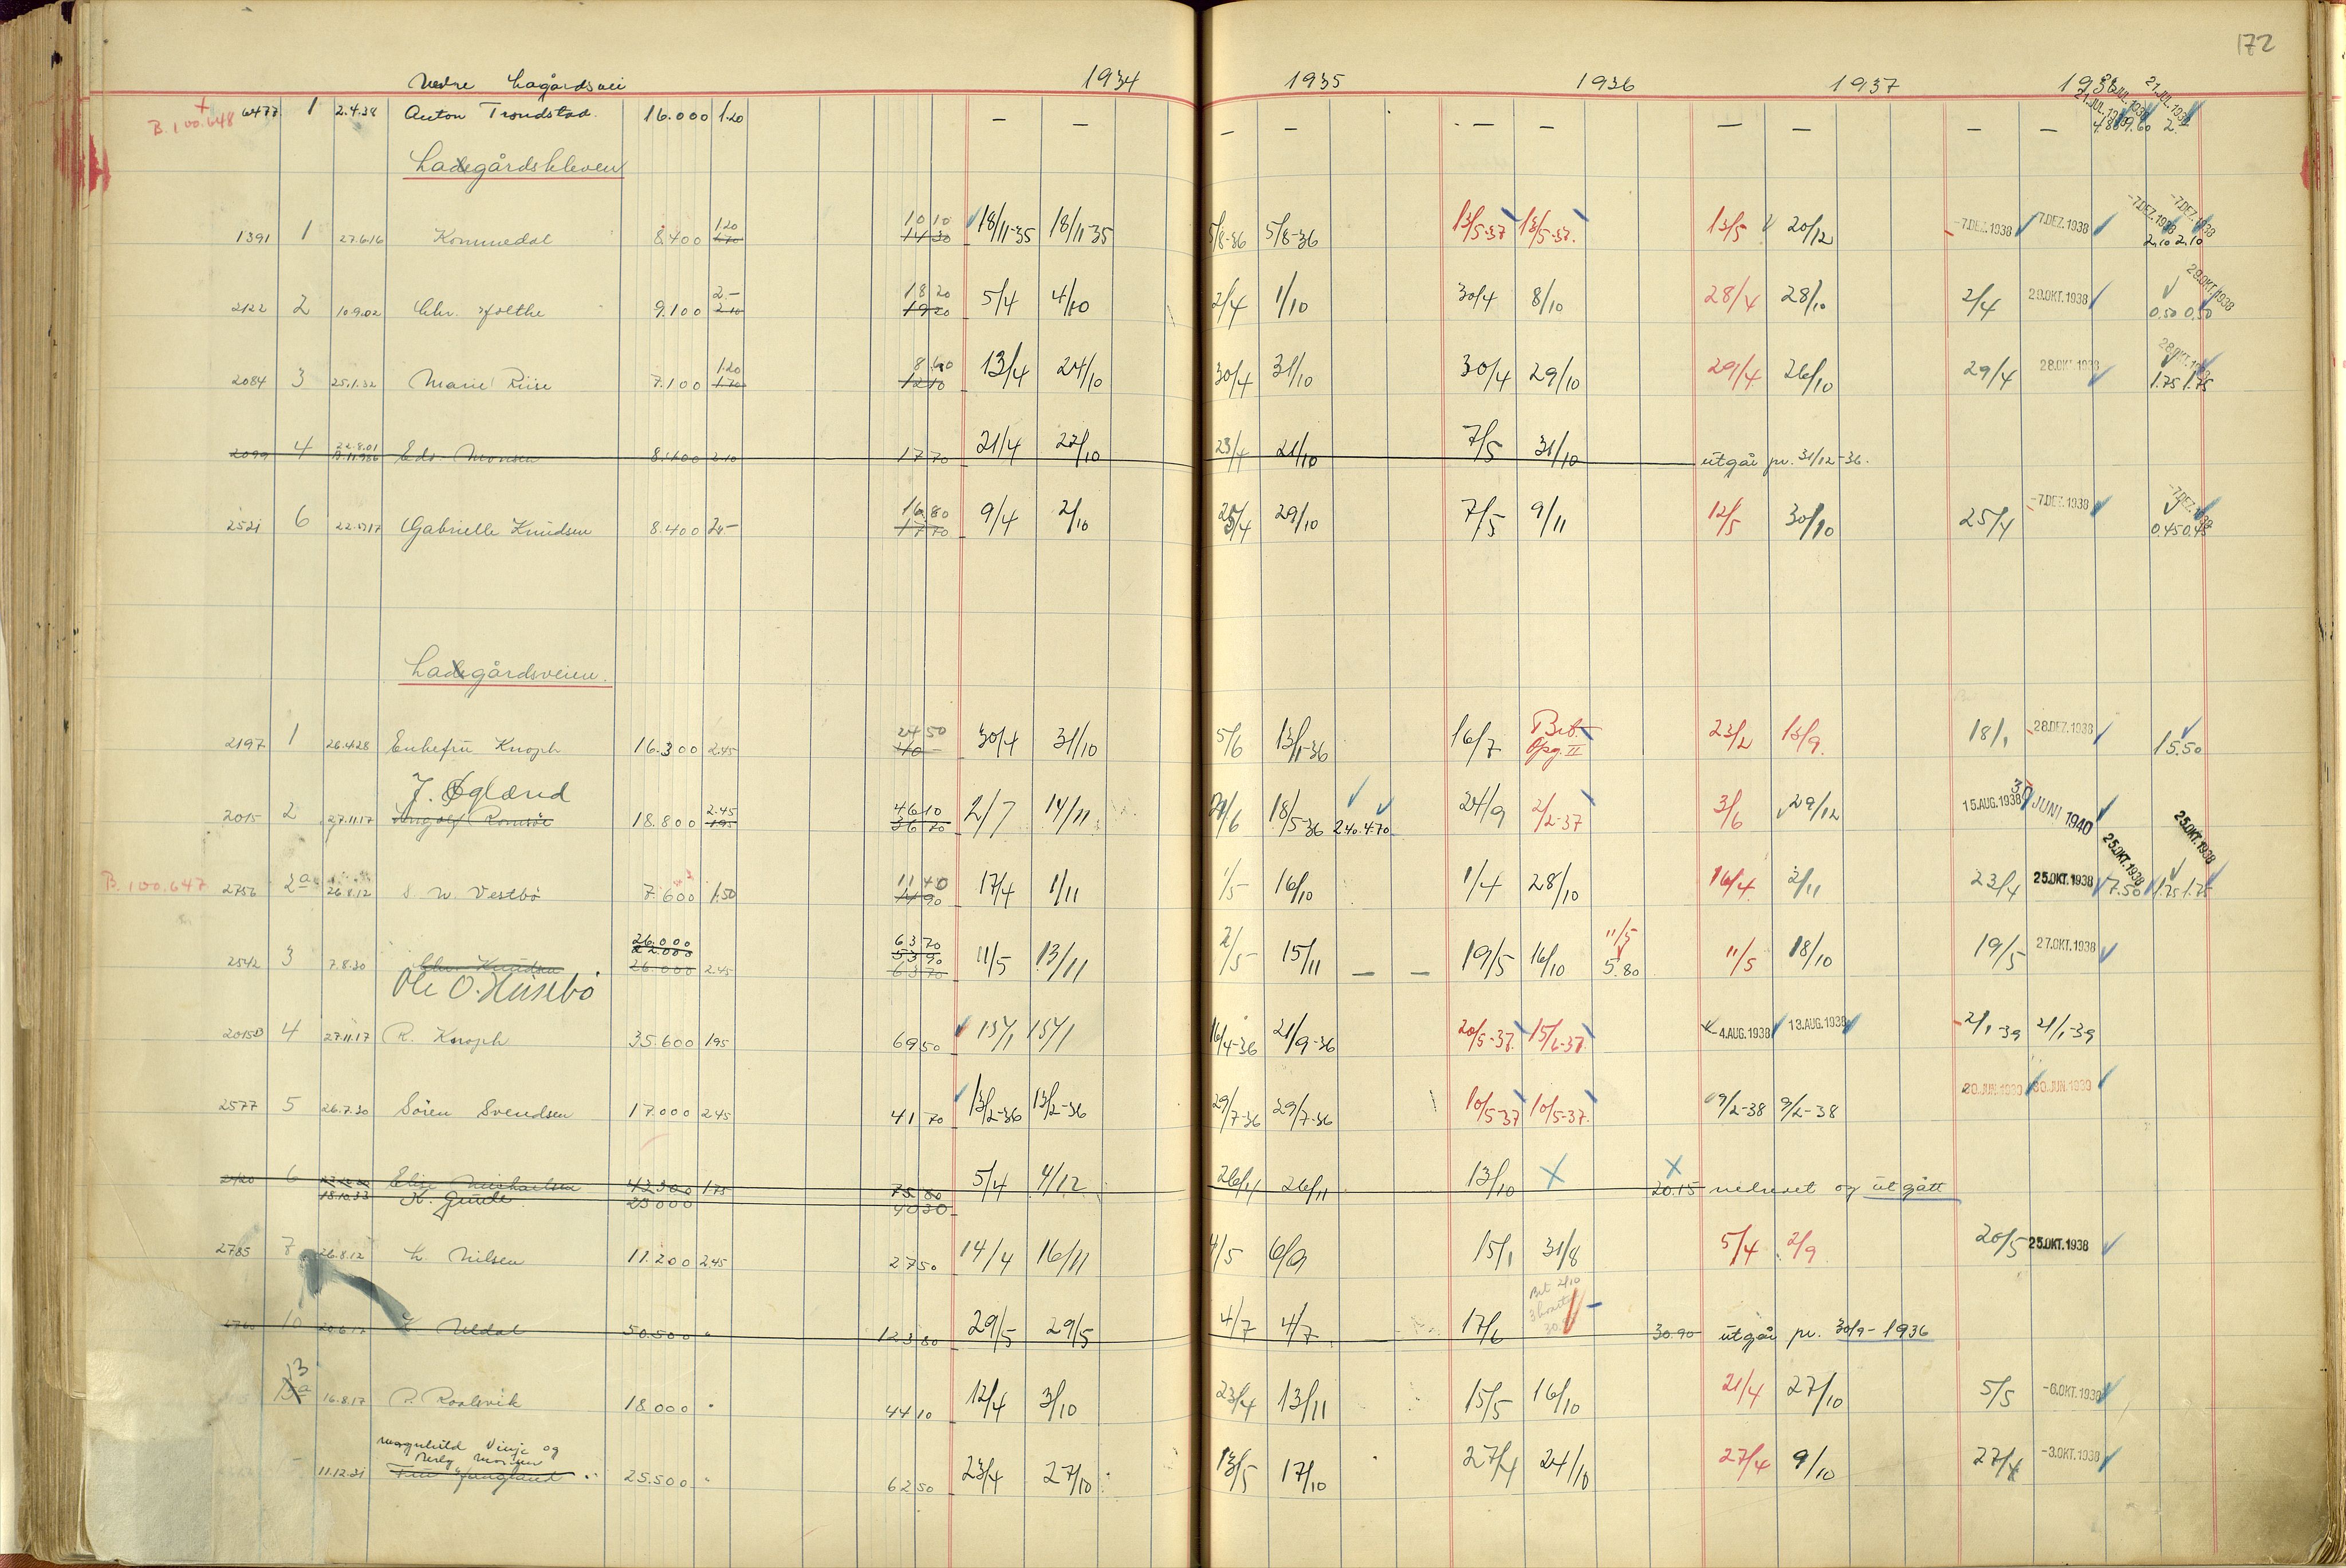 172
1934 1935 1936 1937
B.100.648 6477 1 2.4.38 Anton Trondstad. 16.000 1.20 — — — — — — — — — — 21.JUL.1938 4.80 9.60 2.
Ladegårdskleven
1391 1 27.6.16 Kommedal 8.400 1.20 1.70 10 10 14 30 18/11-35 18/11-35 5/8-36 5/8-36 13/5-37 13/5-37. 13/5 20/12 -7.DEZ.1938 -7.DEZ.1938 -7.DEZ.1938 -7.DEZ.1938 2.10 2.10
2122 2 10.9.02 Chr. 9.100 2.- 2.10 18 20 19 20 5/4 4/10 2/4 1/10 30/4 8/10 28/4 28/10 2/4 29.OKT.1938 29.OKT.1938 0.50 0.50
2084 3 25.1.32 Marie Riise 7.100 1.20 1.70 8 60 12 10 13/4 24/10 30/4 31/10 30/4 29/10 29/4 26/10 29/4 28.OKT.1938 28.OKT.1938 1.75 1.75
2099 4 22.8.01 Edv. Monsen 8.400 2.10 17 70 21/4 22/10 23/4 21/10 7/5 31/10 utgår pr. 31/12-36.
2521 6 Gabrielle Knudsen 8.400 2.- 16 80 17 70 9/4 2/10 25/4 29/10 7/5 9/11 12/5 30/10 25/4 -7.DEZ.1938 -7.DEZ.1938 0.45 0.45
Ladegårdsveien.
2197 1 26.4.28 Enkefru Knoph 16.300 2.45 24 50 40 - 30/4 31/10 5/6 13/1-36 16/7 Opg. II 23/2 13/9. 18/1 28.DEZ.1938 15.50
J. Øgland
2015 2 27.11.17 18.800 2.45 1.95 46 10 36 70 2/7 14/11 18/5-36 2.40 4.70 24/9 2/2-37 3/6 29/12 15.AUG.1938 30 JUNI 1940
B.100.647 2756 2a 26.8.12 Vestbø 7.600 1.50 11 40 14 90 17/4 1/11 1/5 16/10 1/4 28/10 16/4 2/11 23/4 25.OKT.1938 25.OKT.1938 7.50 25.OKT.1938 1.75 1.75
2542 3 7.8.30 Chr. Knudsen 26.000 22.000 26.000 2.45 63 70 53 90 63 70 11/5 13/11 2/5 15/11 — — 19/5 16/10 11/5 5.80 11/5 18/10 19/5 27.OKT.1938
Ole O. Husebø
4 27.11.17 R. Knoph 35.600 1.95 69 50 15/1 15/1 16/4-36 21/9-36 20/5-37. 15/6-37. -4.AUG.1938 13.AUG.1938 21/1-39 21/1-39
2577 5 26.7.30 Sören Svendsen 17.000 2.45 41 70 13/2-36 13/2-36 29/7-36 29/7-36 10/5-37 10/5-37. 9/2-38 9/2-38 30.JUN.1939 30.JUN.1939
6 Elise Michaelsen 43.300 1.75 75 80 5/4 4/12 26/11 26/11 13/10 X X 20.15 nedrevet og utgått
18.10.33 K. Gjude 23000 40 30
2785 7 26.8.12 K. Nilsen 11.200 2.45 27 50 14/4 16/11 4/5 6/9 15/1 31/8 5/4 2/9 20/5 25.OKT.1938
10 20.6.17 Uldal 50.500 " 123 80 29/5 29/5 4/7 4/7 17/6 30.90 utgår pr. 30/9-1936
13 16.8.17 18.000 " 44 10 12/4 3/10 23/4 13/11 15/5 16/10 21/4 27/10 5/5 -6.OKT.1938
Magnhild Vinje og
11.12.21 25.500 " 62 50 23/4 27/10 13/5 17/10 27/4 24/10 27/4 9/10 27/4 -3.OKT.1938